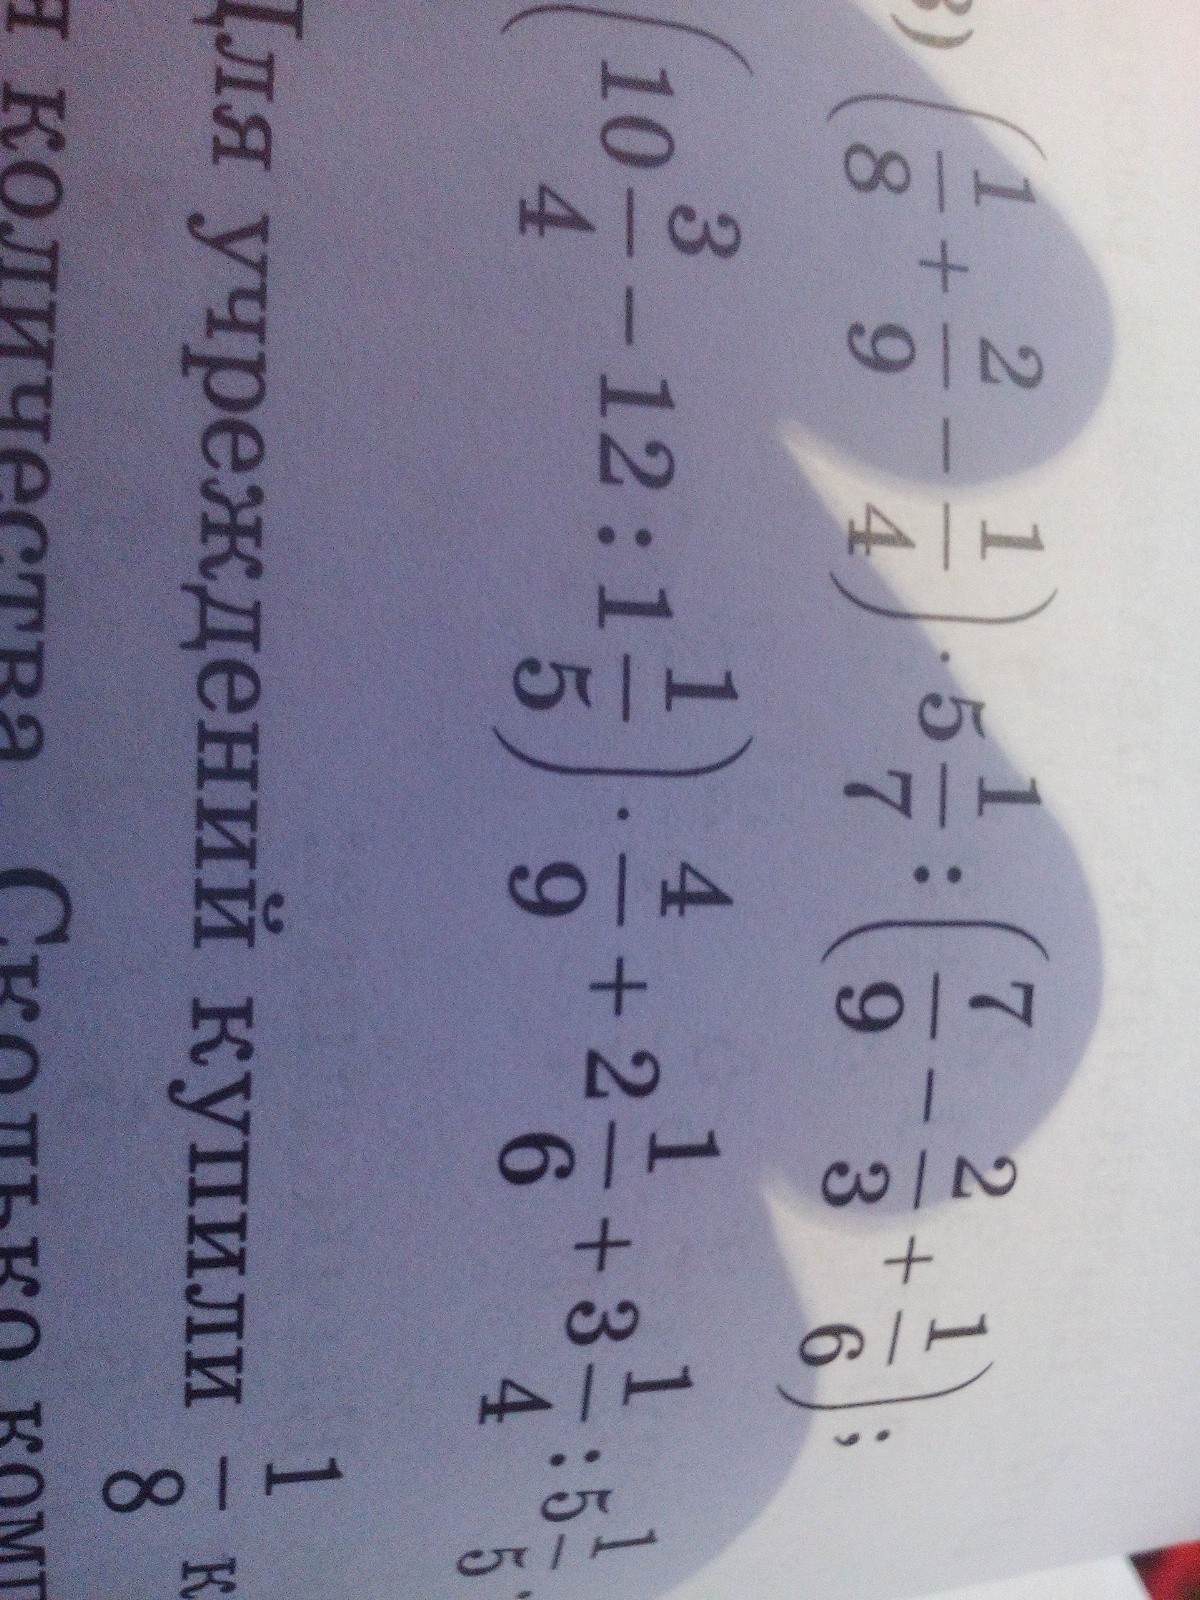 3) (1/8 + 2/9 − 1/4) · 5 1/7 : (7/9 − 2/3 + 1/6);
(10 3/4 − 12 : 1 1/5) · 4/9 + 2 1/6 + 3 1/4 : 5 1/5.
Для учреждений купили 1/8 к
количества Сколько